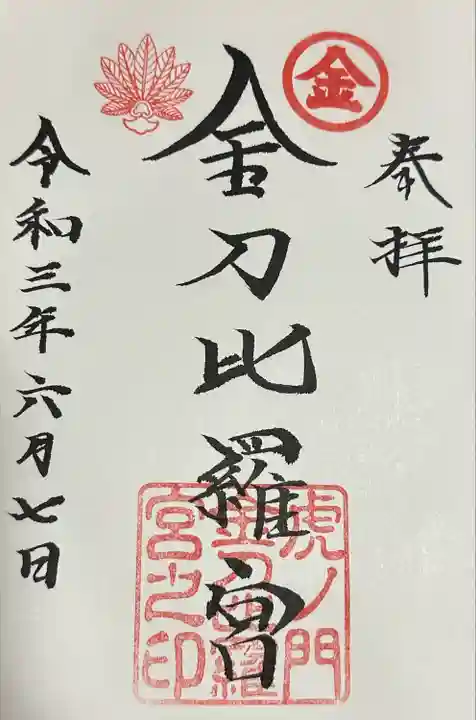 奉拝
金
金刀比羅宮
虎ノ門
金刀比羅
宮之印
令和三年六月七日